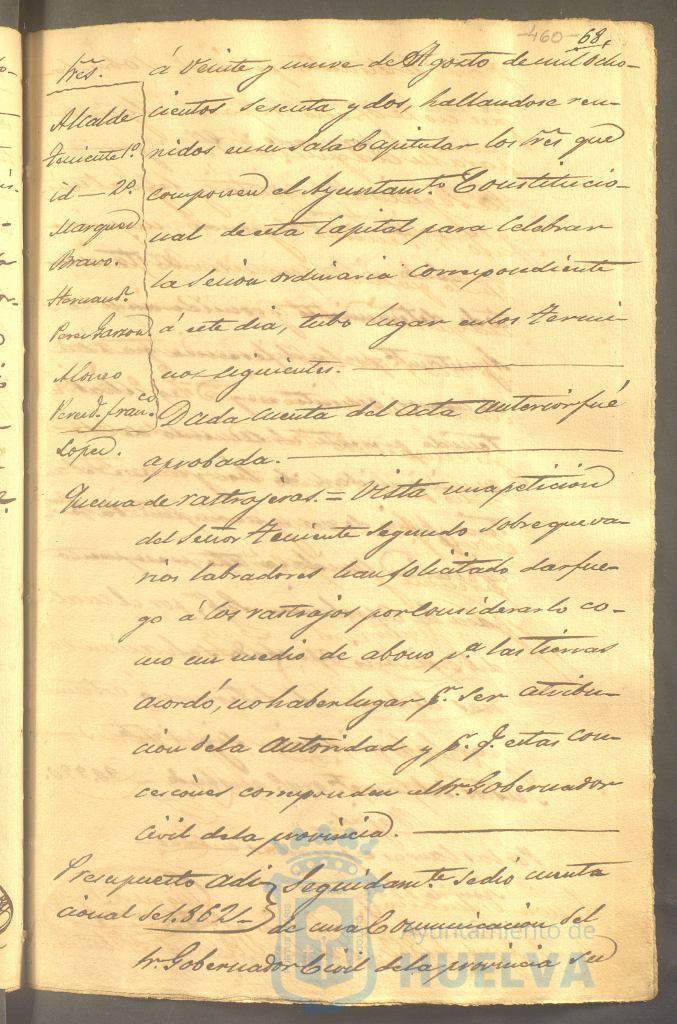 -460- 68,
Sres.
Alcalde
Teniente 1.º
id — 2.º
Marquez
Bravo.
Hernanz.
Perez Garzon
Alonso
Perez D. Franco.
Lopez.
á Veinte y nueve de Agosto de mil Ocho-
cientos sesenta y dos, hallandose reu-
nidos en su Sala Capitular los Sres que
componen el Ayuntamto. Constitucio-
nal de esta Capital para Celebrar
la Sesion ordinaria correspondiente
á este dia, tubo lugar en los termi-
nos siguientes.
Dada Cuenta del Acta Anterior fué
aprobada.
Quema de rastrojeras. = Vista una peticion
del Señor Teniente Segundo sobre que va-
rios labradores han solicitado dar fue-
go á los rastrojos por considerarlo co-
mo un medio de abono pa. las tierras
acordó, no haber lugar pr. ser atribu-
cion de la Autoridad y pr. q. estas con-
cesiones corresponden al Sr. Gobernador
Civil de la provincia.
Presupuesto Adi
cional de 1.862—
Seguidamte. se dió cuenta
de una Comunicacion del
Sr. Gobernador Civil de la provincia su
Ayuntamiento de
HUELVA